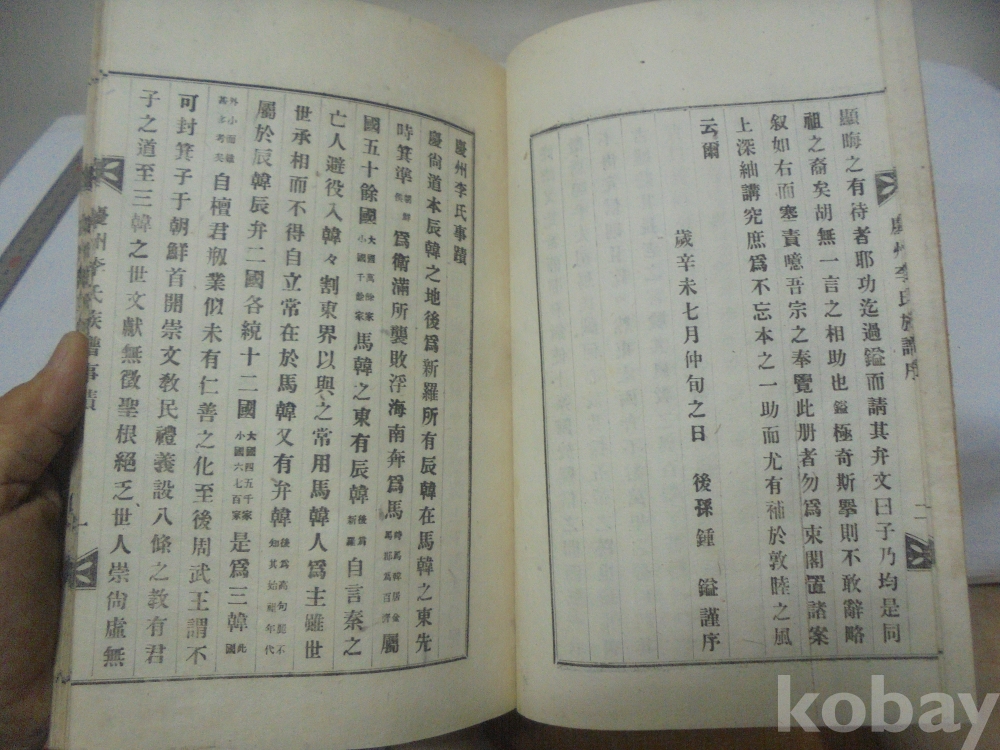 顯晦之有待者耶功迄過鎰而請其弁文曰子乃均是同
祖之裔矣胡無一言之相助也鎰極奇斯擧則不敢辭略
叙如右而塞責噫吾宗之奉覽此册者勿爲束閣置諸案
上深紬講究庶爲不忘本之一助而尤有補於敦睦之風
云爾
歲辛未七月仲旬之日 後孫 鍾 鎰謹序
慶州李氏族譜序
二
慶州李氏事蹟
慶尙道本辰韓之地後爲新羅所有辰韓在馬韓之東先
時箕準朝鮮侯爲衛滿所襲敗浮海南奔爲馬 屬
國五十餘國大國萬餘家小國千餘家馬韓之東有辰韓後爲新羅自言秦之
亡人避役入韓々割東界以與之常用馬韓人爲主雖世
世承相而不得自立常在於馬韓又有弁韓後爲高句麗不知其始祖年代
屬於辰韓辰弁二國各統十二國大國四五千家小國六七百家是爲三韓此國
外小國雖甚多考矣自檀君刱業似未有仁善之化至後周武王謂不
可封箕子于朝鮮首開崇文敎民禮義設八條之敎有君
子之道至三韓之世文獻無徵聖根絕乏世人崇尙虛無
慶州李氏族譜事蹟
一
kobay